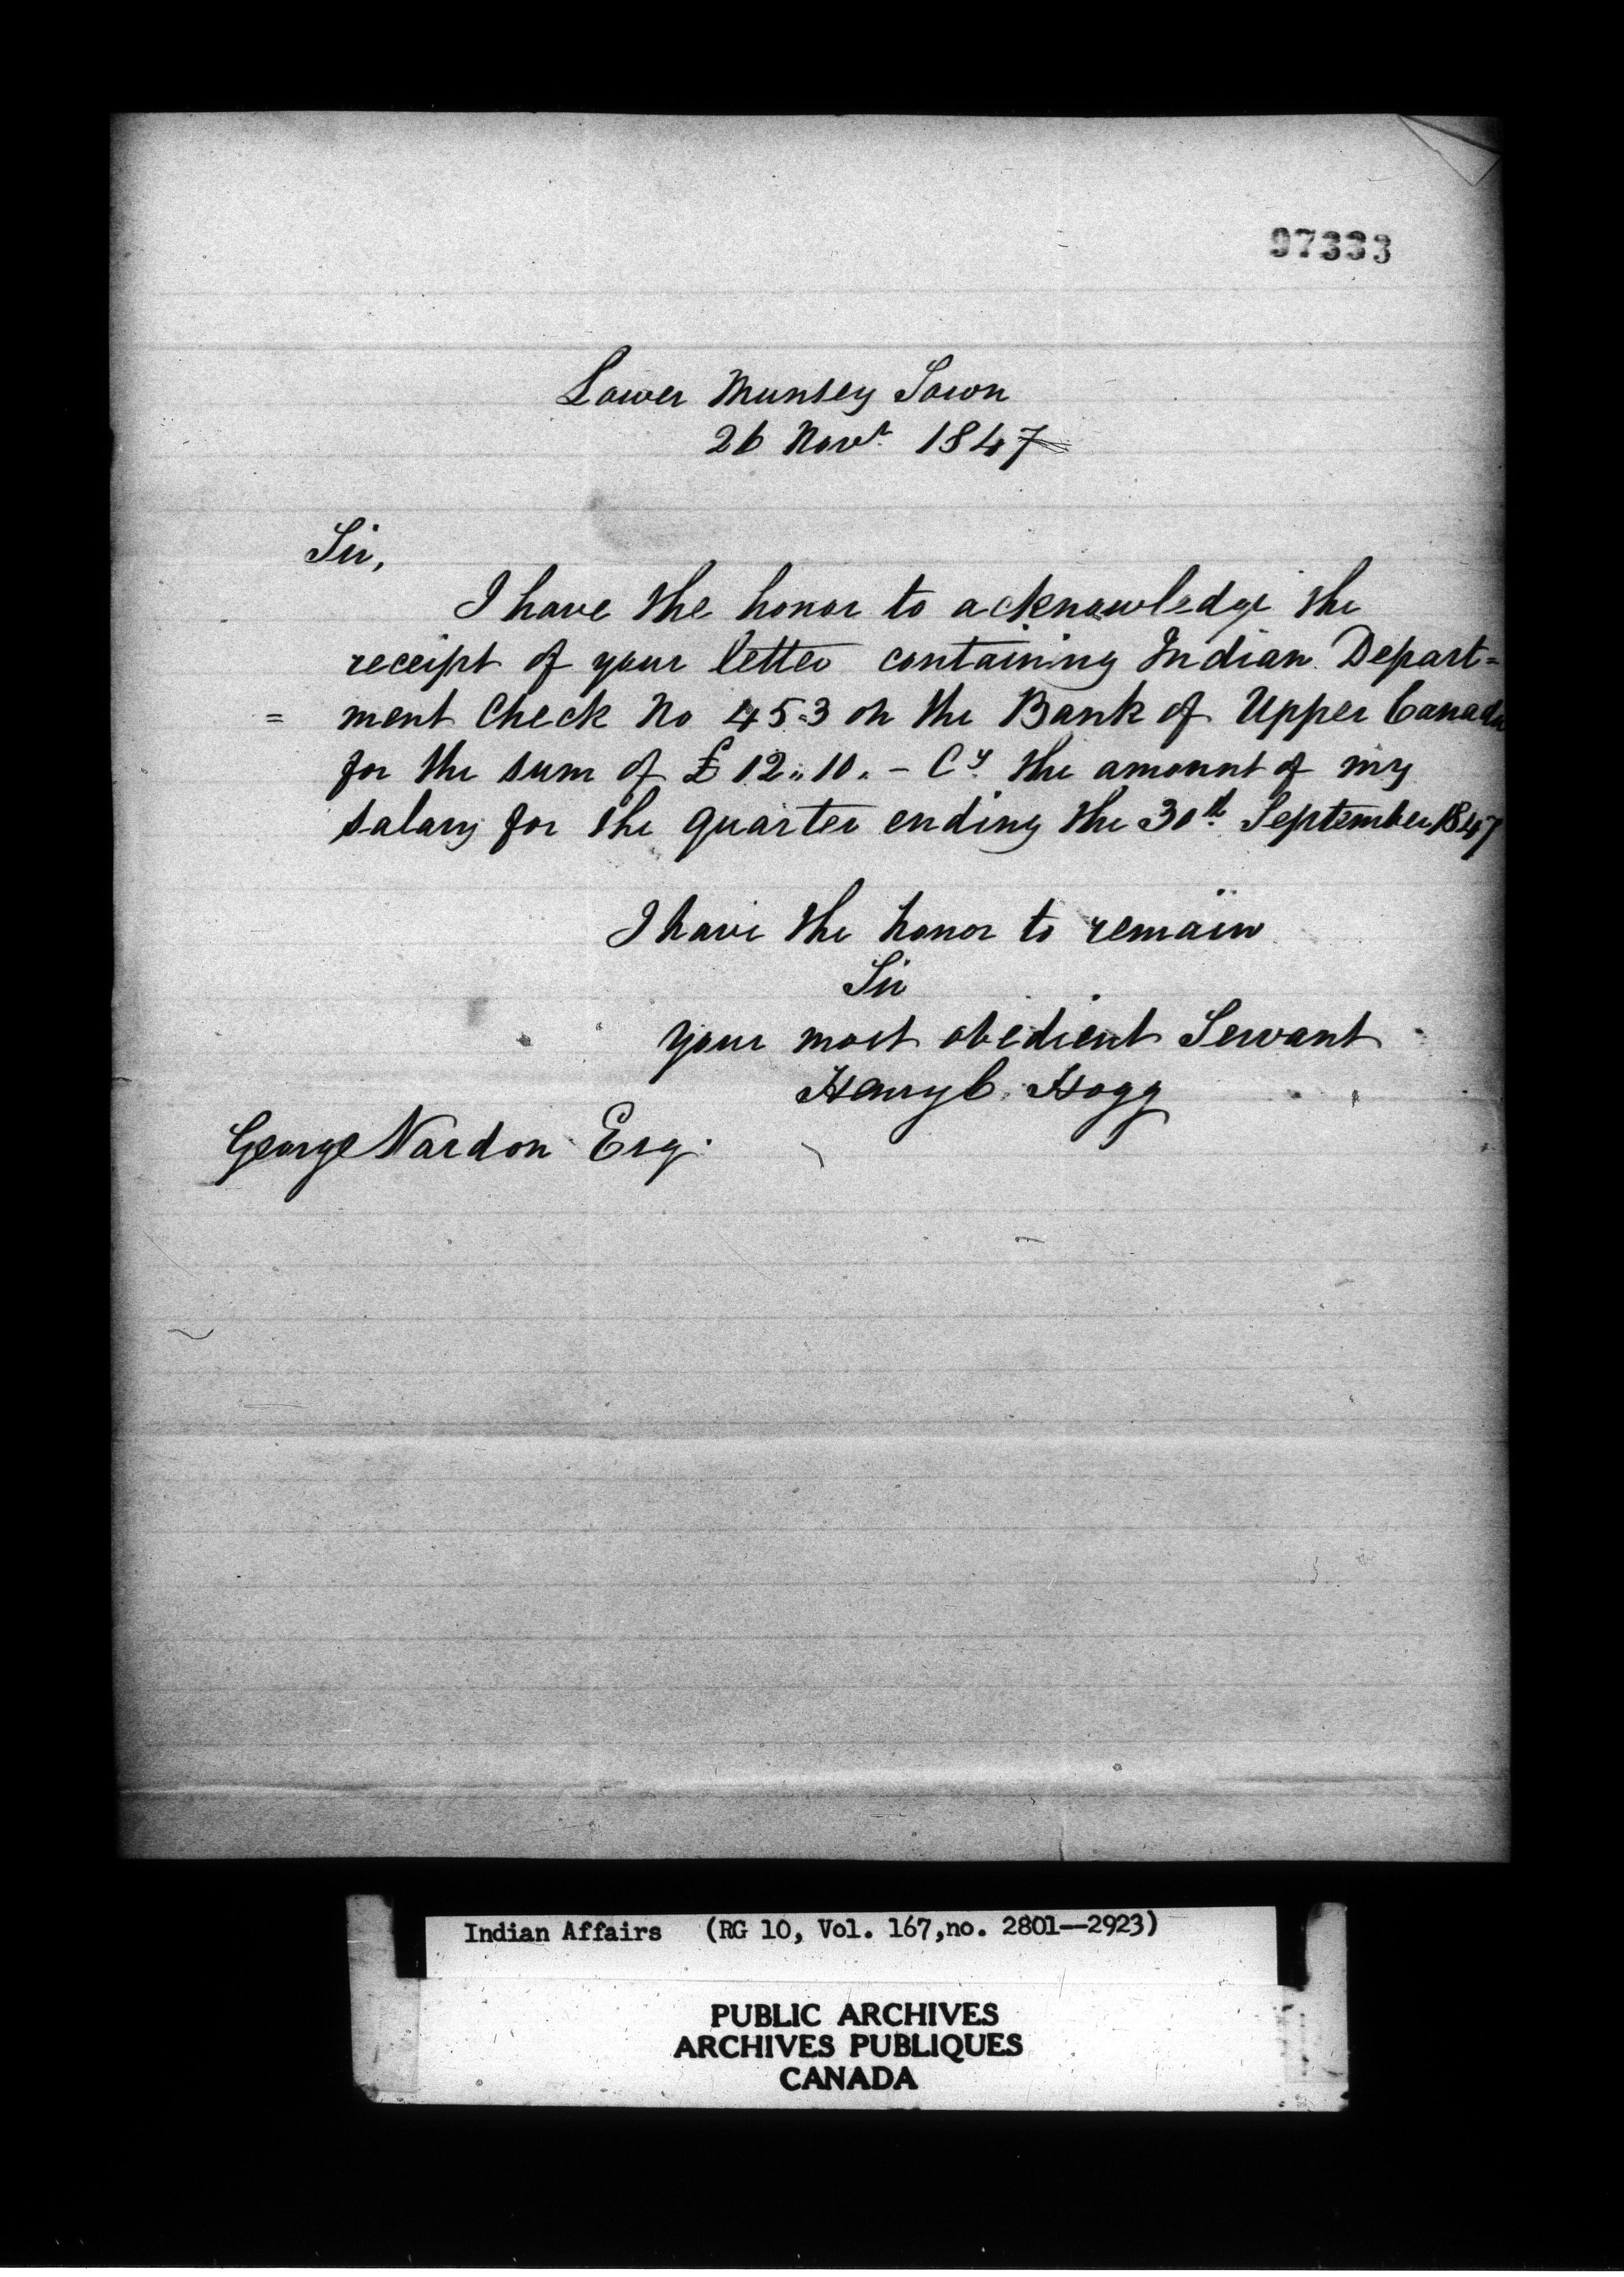 97333
Lower Munsey Town
26 Novr. 1847
Sir,
I have the honor to acknowledge the
receipt of your letter containing Indian Depart=
= ment Check No 453 on the Bank of Upper Canada
for the sum of £12..10. – Cy. the amount of my
salary for the quarter ending the 30th. September 1847
I have the honor to remain
Sir
your most obedient Servant
Henry C. Hogg
George Vardon Esq.
Indian Affairs (RG 10, Vol. 167,no. 2801--2923)
PUBLIC ARCHIVES
ARCHIVES PUBLIQUES
CANADA